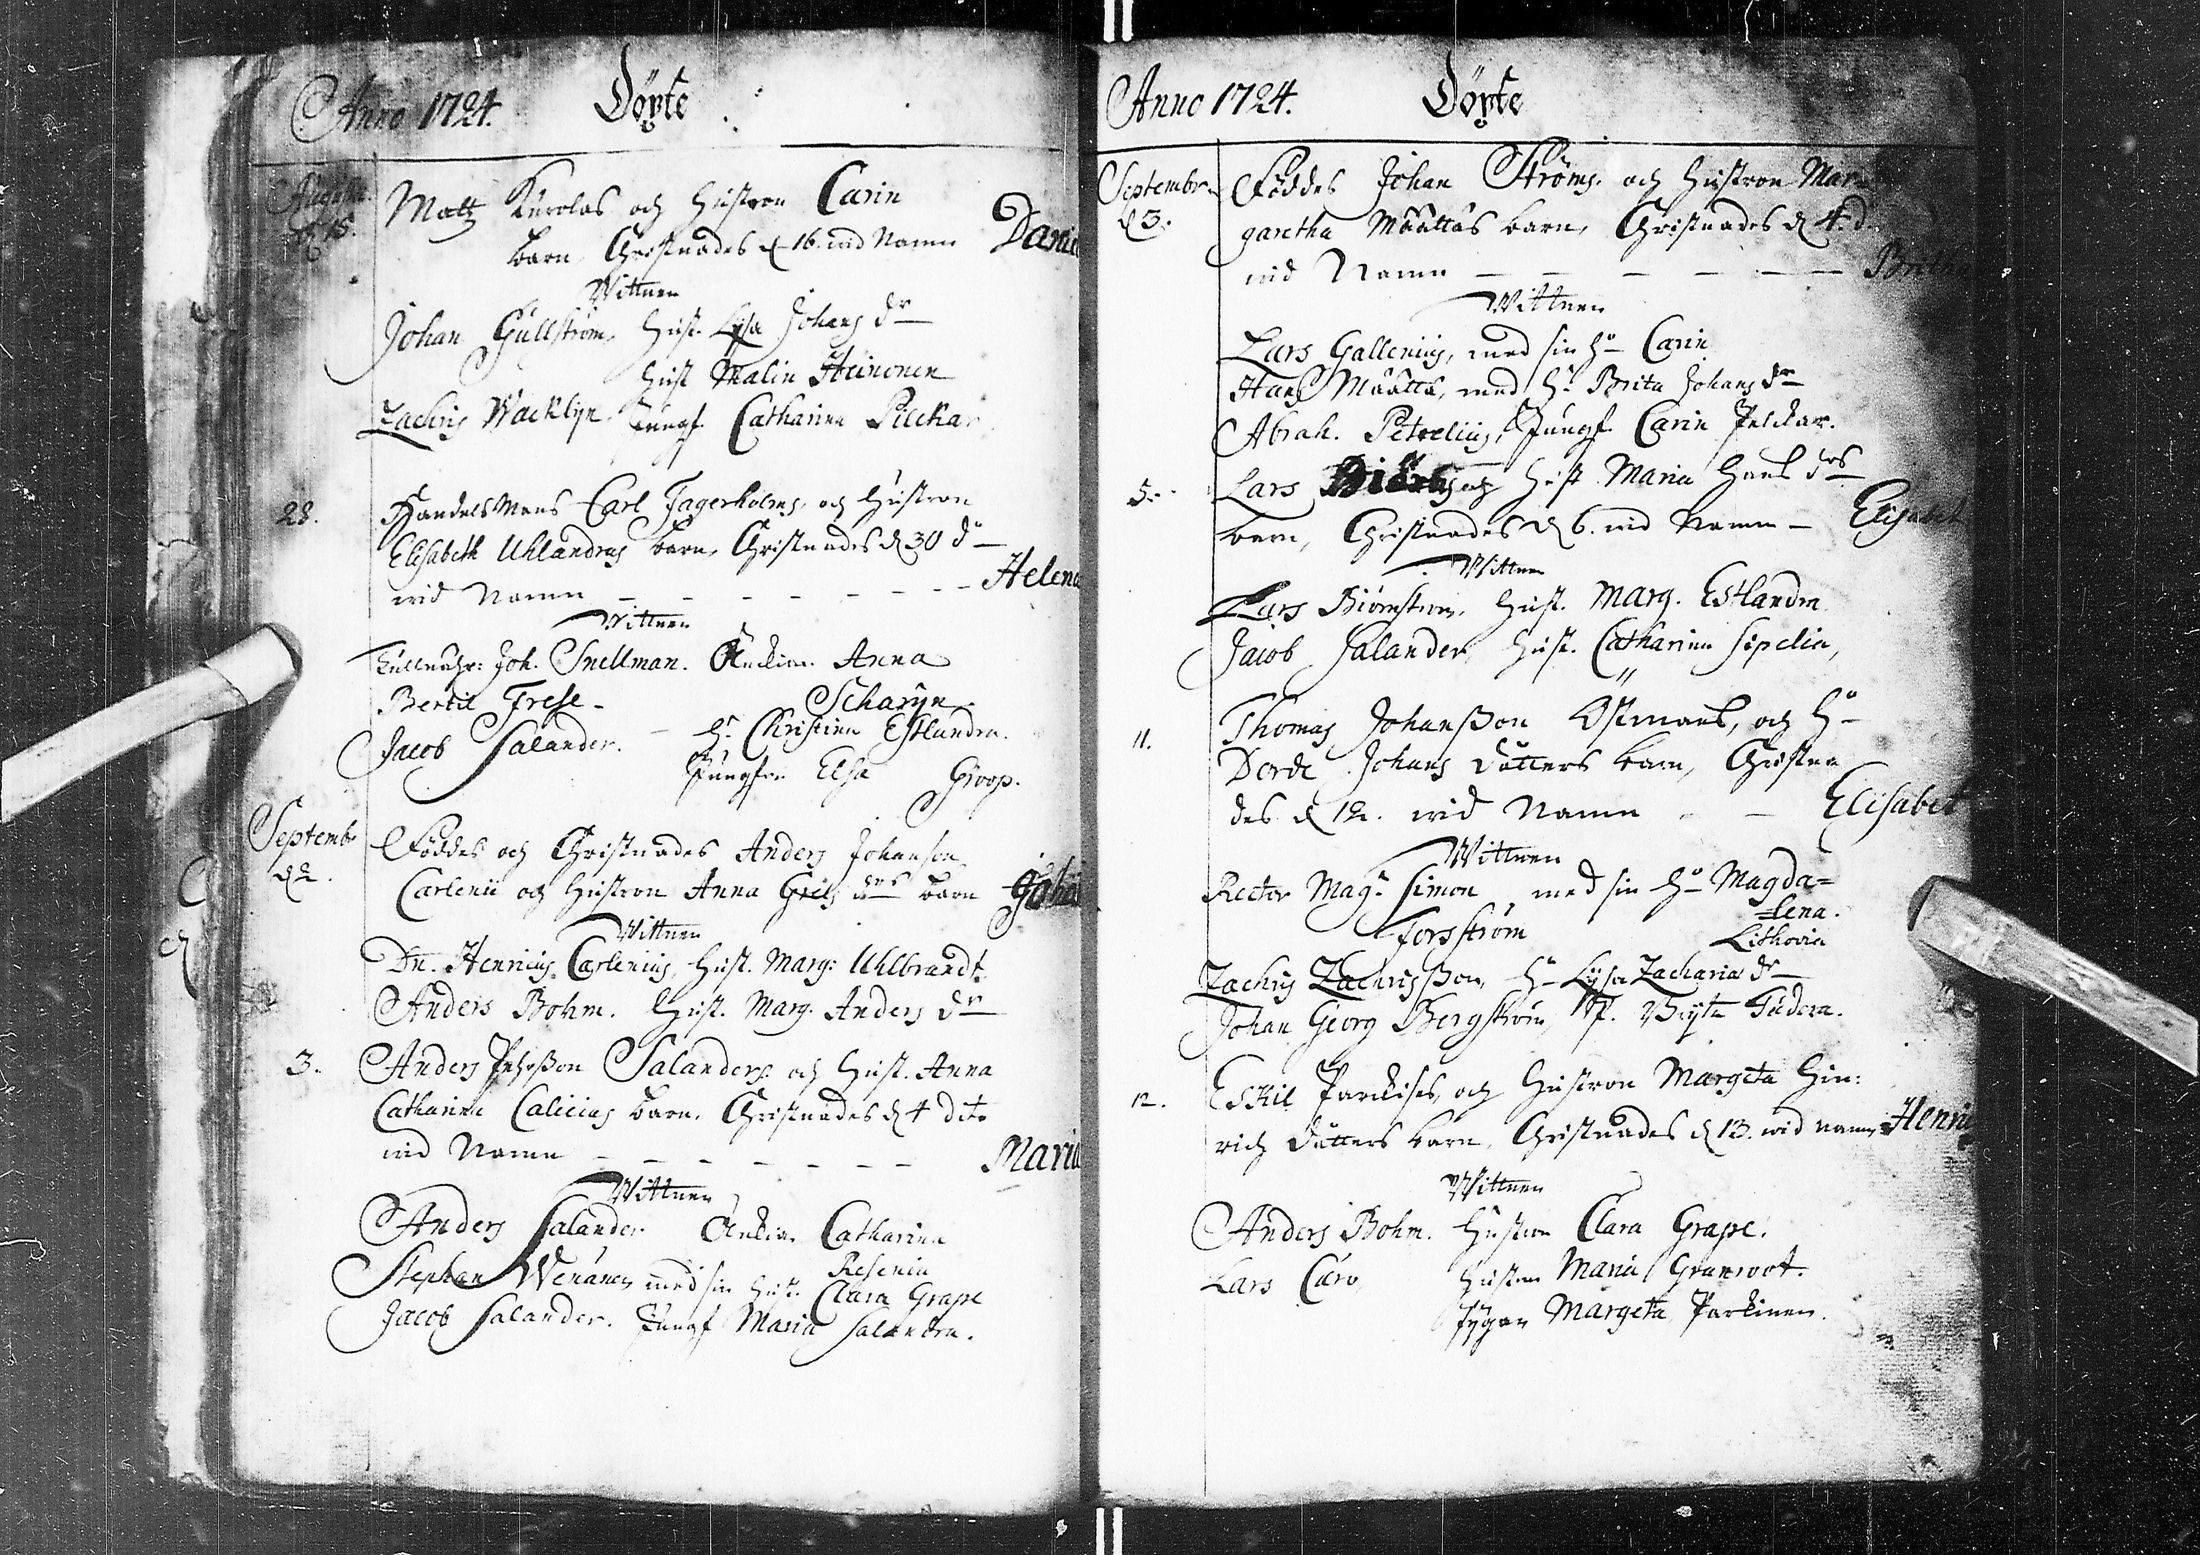 Anno 1724. Döpte
Augusti.
d 15. Matz Kurolas och Hustron Carin
barn Christnades d 16. wid Namn Danie
Wittnen
Johan Gullström, Hust. Lisa Johans dr
Hust Malin Heinonen
Zachris Wacklin. Jungf. Catharina Pilckar
28. Handels Mans Carl Fagerholms, och Hustron
Elisabeth Uhlandras barn, Christnades d 30 do
wid Namn - - - - - - - Helena
Wittnen
Joh. Snellman. Änckian Anna
Bertil Frese - Scharin.
Jacob Salander. - H. Christina Estlandra.
Jungfru Elsa Groop.
Septembr
d 2. Föddes och Christnades Anders Johanson
Carlenii och Hustron Anna drs barn Joha
Wittnen
Dn. Henricus Carlenius, Hust. Marg: Uhlbrandt
Anders Bohm. Hust. Marg. Anders dr
3. Anders Pehrsson Salanders och Hust. Anna
Catharina Calicias barn. Christnades d 4 dito
wid Namn - - - - - - - Maria
Wittnen
Anders Salander Änckian Catharina
Resenia
Stephan Wenänen med sin Hust. Clara Grape
Jacob Salander. Jungf Maria Salandra.
Anno 1724. Döpte
Septembr.
d 3. Föddes Johan Ströms och Hustron Mar=
garetha Määttäs barn, Christnades d 4. d.
wid Namn - - - - - - Britha
Wittnen
Lars Gallenius, med sin Ho Carin
Hans Määttä, med H. Brita Johans dr
Abrah. Petrelius, Jungf. Carin Pelckar.
5. Lars och Hust. Maria Hans drs
barn, Christnades d 6. wid Namn - Elisabet
Wittnen
Lars Biörnström. Hust. Marg. Estlandra
Jacob Salander, Hust. Catharina Sipelia,
11. Thomas Johansson Östmans, och Ho
Dorde Johans dotters barn, Christna
des d 12. wid Namn - - Elisabet
Wittnen
Rector Magr Simon med sin Ho Magda=
=lena.
Forsström Lithovia
Zachris Zachrisson, Ho Lisa Zacharia dr
Johan Georg Bergström, Jf.
12. Eskil Parckises, och Hustron Margeta Hin:
rich dotters barn, Christnades d 13. wid namn Henri
Wittnen
Anders Bohm. Hustron Clara Grape.
Lars Caro, Hustron Maria Granroot.
Pigan Margeta Parckinen.